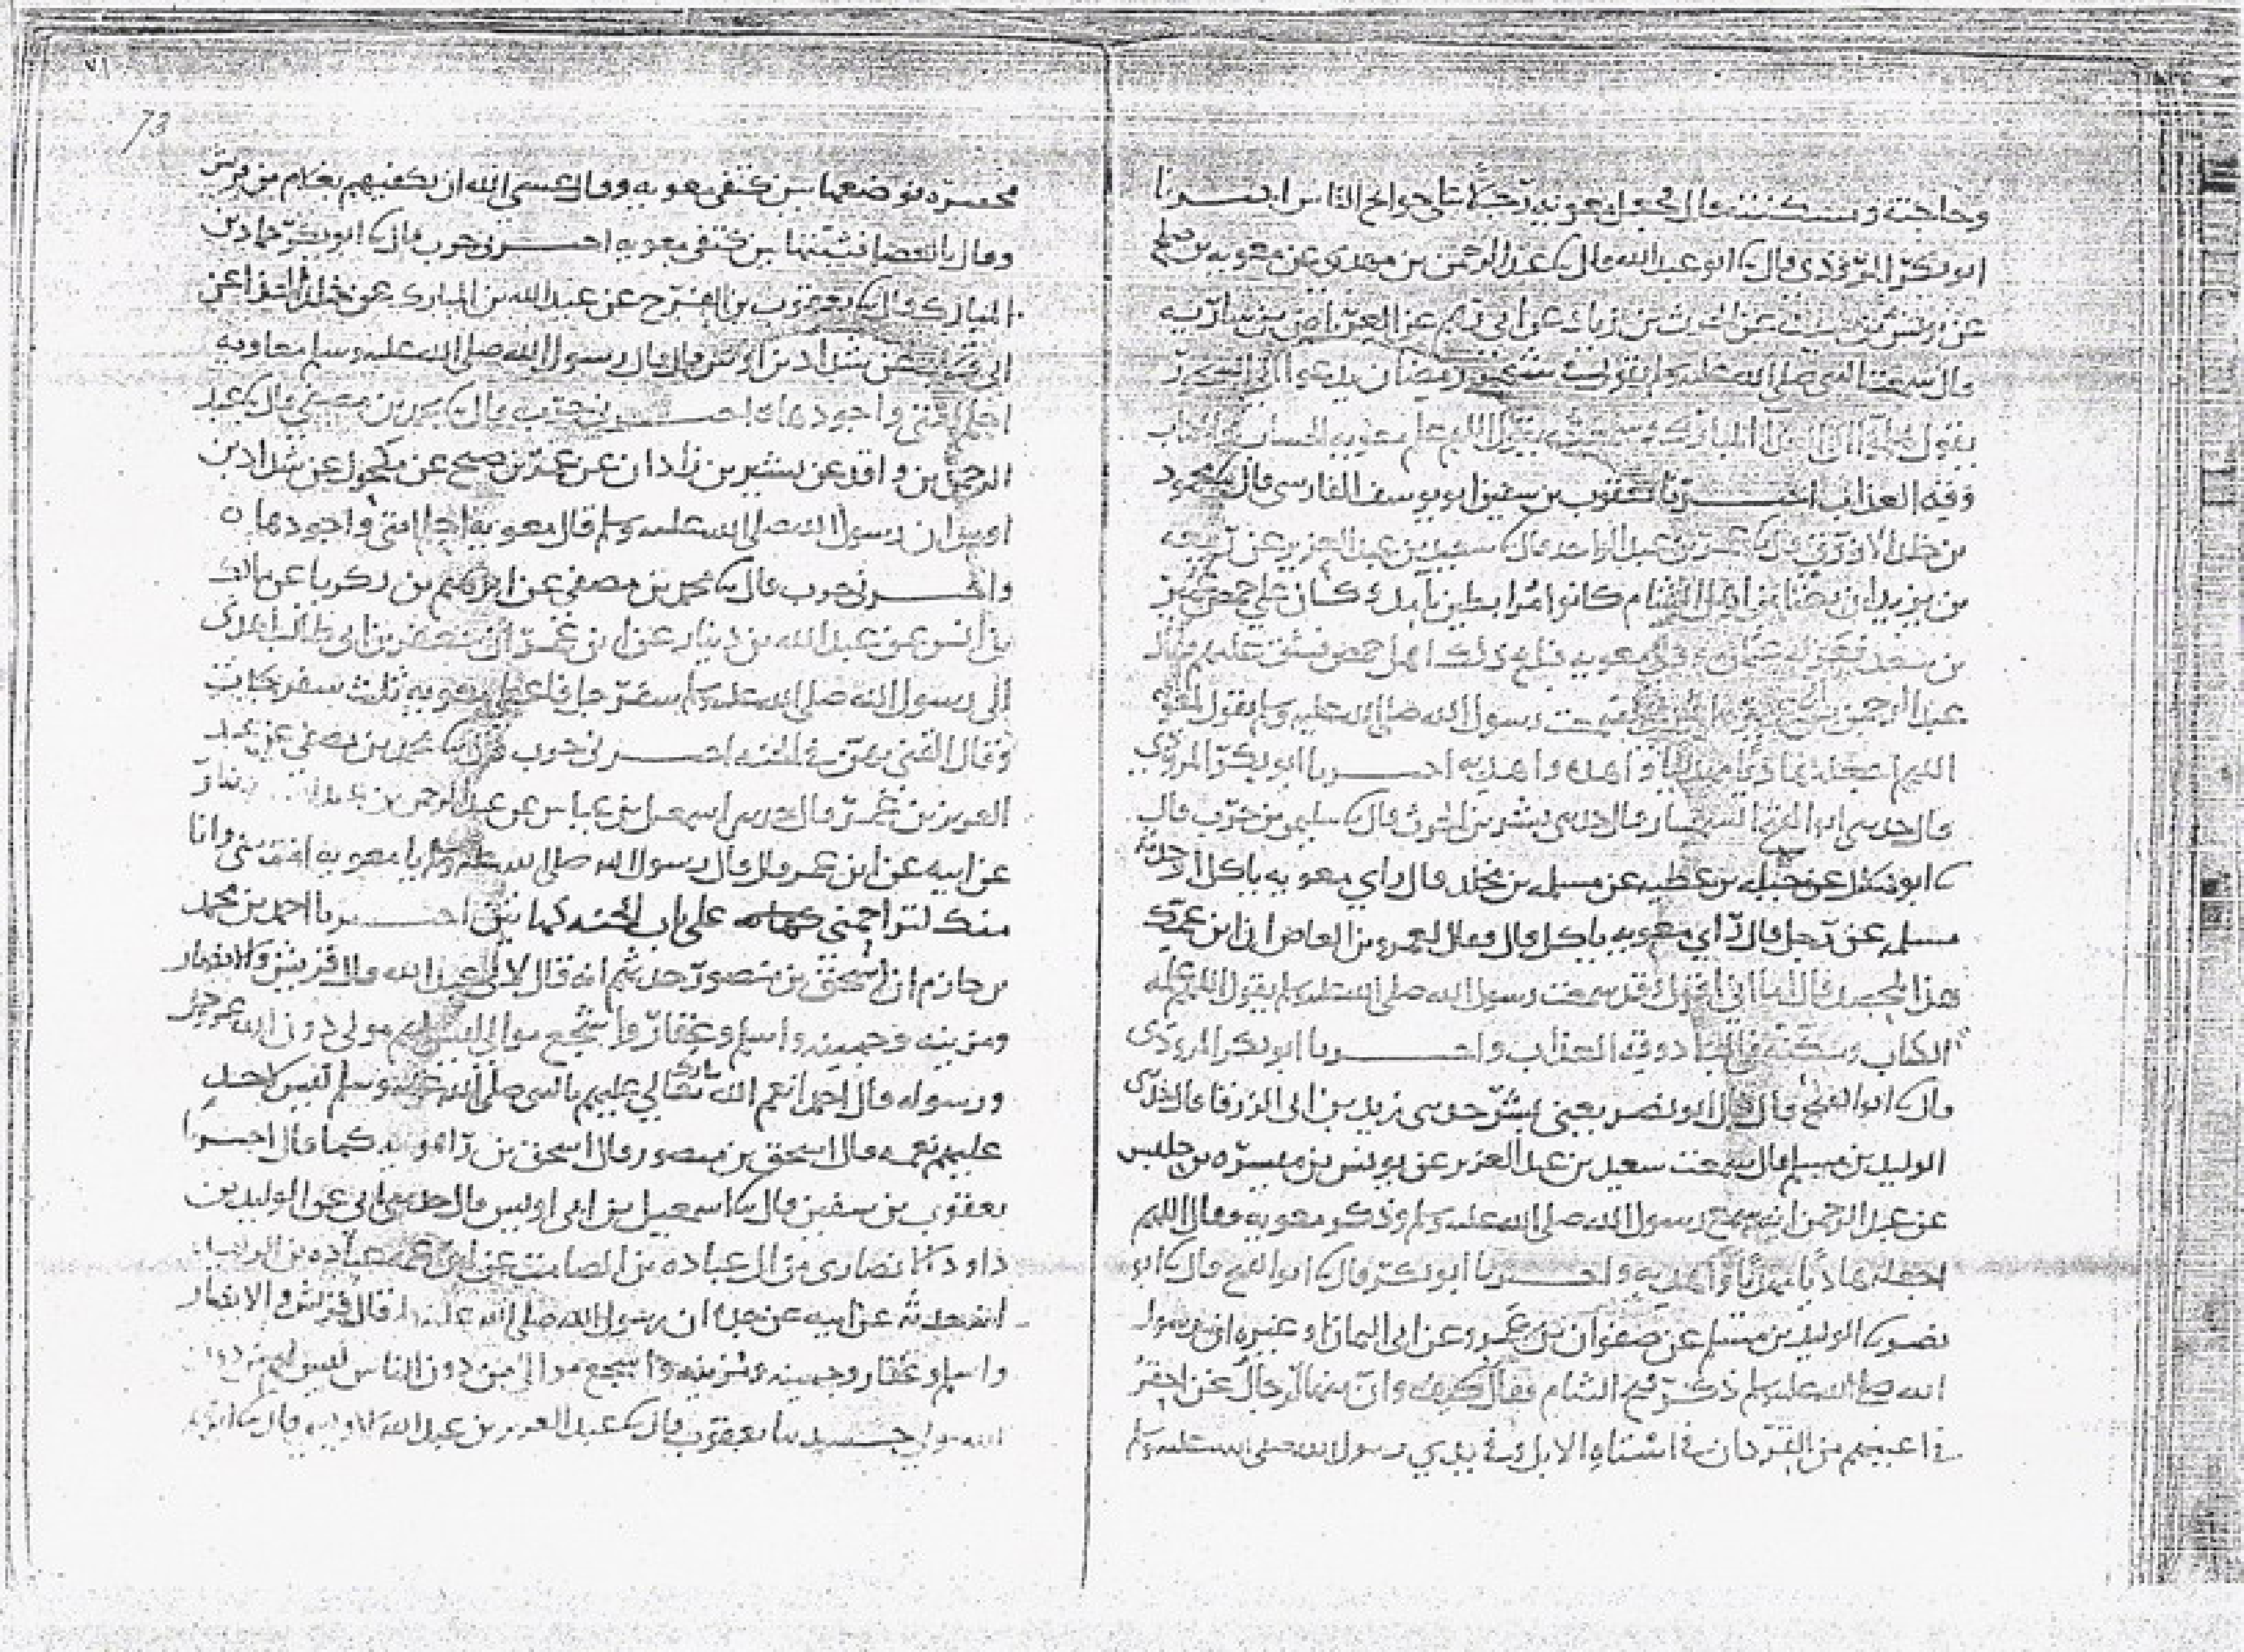 وحاجته ومسكنته قال فجعل معويه رجلا على حوائج الناس اخبرنا
ابو بكر المروذي قال ابو عبد الله قال عبد الرحمن بن مهدي عن معويه بن صلح
عن يونس بن سيف عن الحرث بن زياد عن ابي رهم عن العرباض بن ساريه
قال سمعت النبي صلى الله عليه وسلم في شهر رمضان يدعوا الى السحور
يقول هلموا الى الغدا المبارك ثم سمعته يقول اللهم علم معويه الحساب والكتاب
وقه العذاب اخبرنا يعقوب بن سفين ابو يوسف الفارسي قال محمود
بن خلد الازرق قال عمر بن عبد الواحد قال سعيد بن عبد العزيز عن ربيعه
بن يزيد ان بعثا من اهل الشام كانوا مرابطين بآمد وكان على حمص عمير
بن سعد فعزله عثمان وولى معويه فبلغ ذلك اهل حمص فشق عليهم فقال
عبد الرحمن بن سمعت رسول الله صلى الله عليه وسلم يقول لمعويه
اللهم اجعله هاديا مهديا واهده واهد به اخبرنا ابو بكر المروذي
قال حدثني ابو الفتح السمسار قال حدثني بشر بن الحرث قال سليمن بن حرب قال
ابو هلال عن جبله بن عطيه عن مسلمه بن مخلد قال راى معويه ياكل او حدثه
مسلمه عن رجل قال راى معويه ياكل قال وقال لعمرو بن العاص ان ابن عمك
هذا لمخضد قال اما اني اقول ذا وقد سمعت رسول الله صلى الله عليه وسلم يقول اللهم علمه
الكتاب ومكن له في البلاد وقه العذاب واخبرنا ابو بكر المروذي
قال ابو الفتح قال قال ابو نصر يعني بشر حدثني زيد بن ابي الزرقا قال حدثني
الوليد بن مسلم قال سمعت سعيد بن عبد العزيز عن يونس بن ميسره بن حلبس
عن عبد الرحمن انه سمع رسول الله صلى الله عليه وسلم وذكر معويه وقال اللهم
اجعله هاديا مهديا واهد به واخبرنا ابو بكر قال ابو الفتح قال ابو
نصر الوليد بن مسلم عن صفوان بن عمرو عن ابي اليمان او غيره ان رسول
الله صلى الله عليه وسلم ذكر فتح الشام فقال كيف وان بها رجال نحن احقر
في اعينهم من القردان في استاه الابل وفي يدي رسول الله صلى الله عليه وسلم
٧١
73
مخصره فوضعها بين كتفي معويه وقال عسى الله ان يكفيهم بغلام من قريش
وقال بالعصا فثبتها بين كتفي معويه اخبرني حرب قال ابو بكر حماد بن
المبارك قال يعقوب بن الفرح عن عبد الله بن المبارك عن خلد الحذا عن
ابي قلابه عن شداد بن اوس قال قال رسول الله صلى الله عليه وسلم معاويه
احلم امتي واجودها اخبرني حرب قال محمد بن مصفى قال عبد
الرحمن بن واقد عن بشير بن زاذان عن عمر بن صبح عن مكحول عن شداد بن
اوس ان رسول الله صلى الله عليه وسلم قال معويه احلم امتي واجودها
واخبرني حرب قال محمد بن مصفى عن ابرهيم بن زكريا عن مالك
بن انس عن عبد الله بن دينار عن ابن عمر ان جعفر بن ابي طالب اهدى
الى رسول الله صلى الله عليه وسلم سفرجلا فاعطى معويه ثلث سفرجلات
وقال القني بهن في الجنه اخبرني حرب قال محمد بن مصفى عن عبد
العزيز بن عمر قال حدثني اسمعيل بن عياش عن عبد الرحمن بن عبد الله بن دينار
عن ابيه عن ابن عمر قال قال رسول الله صلى الله عليه وسلم يا معويه انت مني وانا
منك لتزاحمني على باب الجنه كهاتين اخبرنا احمد بن محمد
بن حازم ان اسحق بن منصور حدثهم انه قال لابي عبد الله والا قريش والانصار
ومزينه وجهينه واسلم وغفار واشجع موالي ليس لهم مولى دون الله عز وجل
ورسوله قال احمد انعم الله تبارك تعالى عليهم بالنبي صلى الله عليه وسلم ليس لاحد
عليهم نعمه قال اسحق بن منصور قال اسحق بن راهويه كما قال اخبرنا
يعقوب بن سفين قال اسمعيل بن ابي اويس قال حدثني ابي عن الوليد بن
داود الانصاري من ال عباده بن الصامت عن ابن عمه عباده بن الوليد
انه حدثه عن ابيه عن جده ان رسول الله صلى الله عليه وسلم قال قريش والانصار
واسلم وغفار وجهينه ومزينه واشجع موالي من دون الناس ليس لهم دون
الله مولى حدثنا يعقوب قال عبد العزيز بن عبد الله الاويسي قال ابراهيم